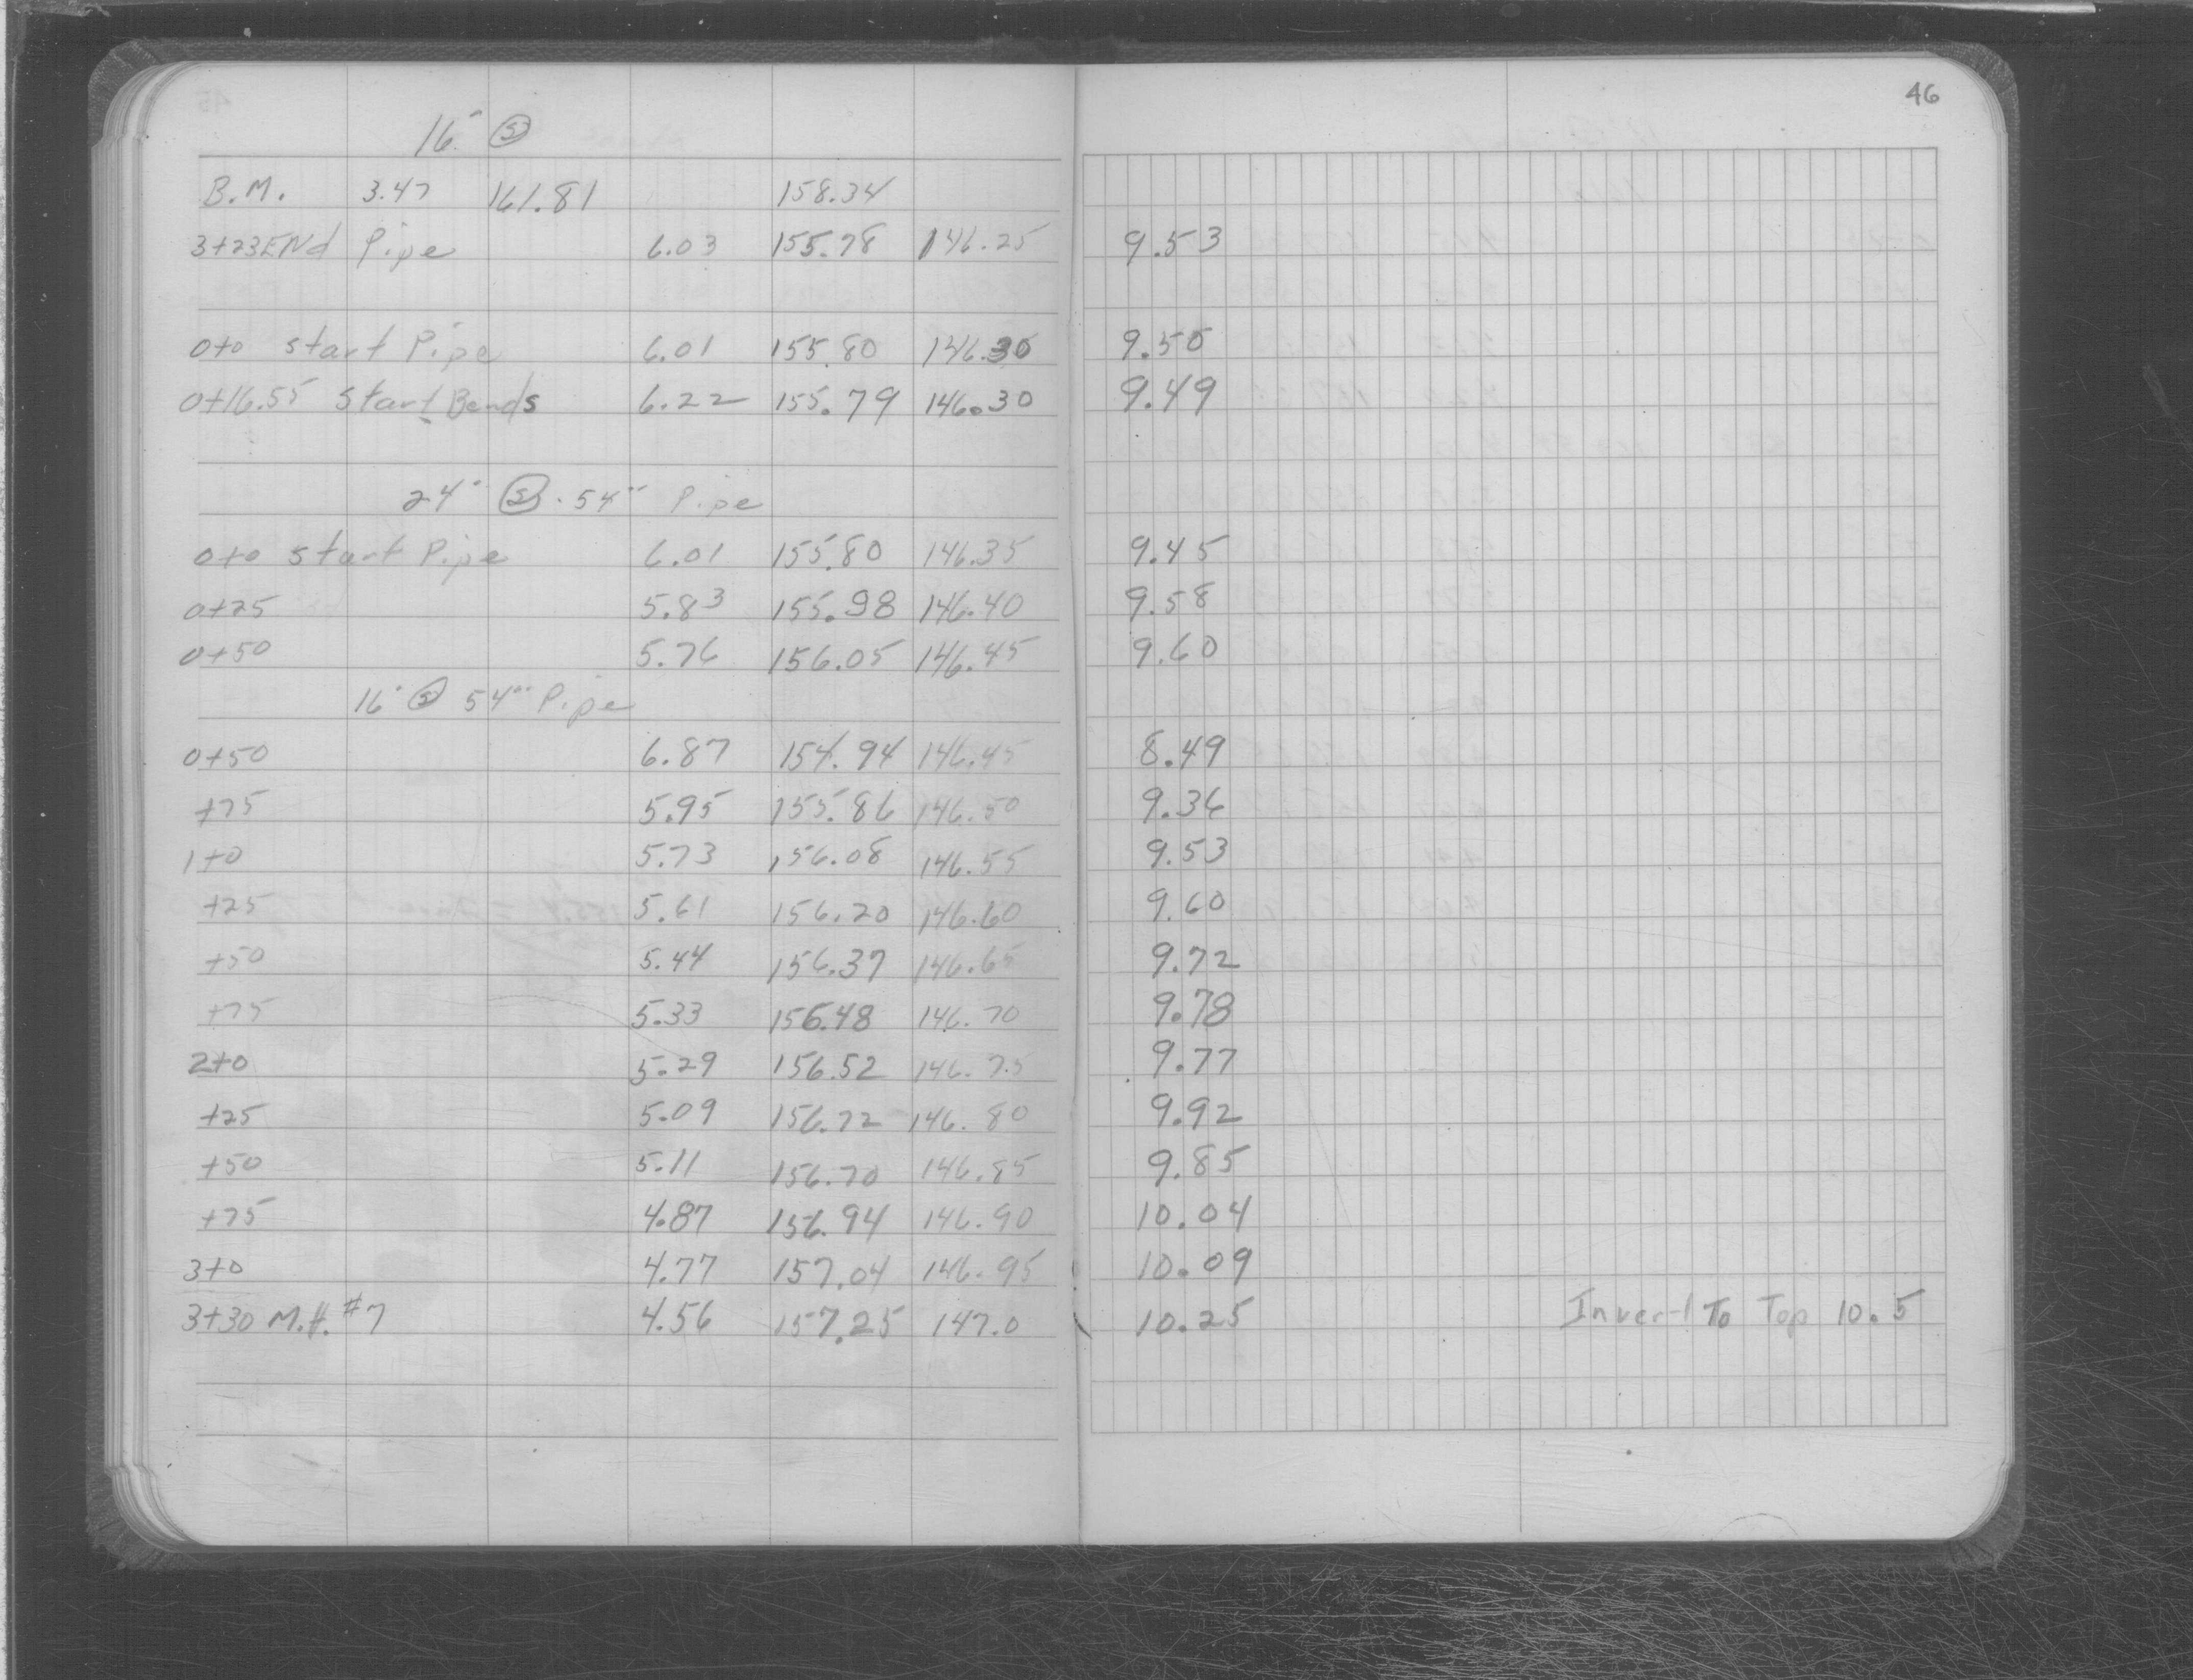 46
16" Ⓢ
B.M. 3.47 161.81 158.34
3+23 End Pipe 6.03 155.78 146.25 9.53
0+0 start Pipe 6.01 155.80 146.30 9.50
0+16.55 Start Bends 6.22 155.79 146.30 9.49
24" Ⓢ - 54"" Pipe
0+0 start Pipe 6.01 155.80 146.35 9.45
0+25 5.83 155.98 146.40 9.58
0+50 5.76 156.05 146.45 9.60
16" Ⓢ 54"" Pipe
0+50 6.87 154.94 146.45 8.49
+75 5.95 155.86 146.50 9.36
1+0 5.73 156.08 146.55 9.53
+25 5.61 156.20 146.60 9.60
+50 5.44 156.37 146.65 9.72
+75 5.33 156.48 146.70 9.78
2+0 5.29 156.52 146.75 9.77
+25 5.09 156.72 146.80 9.92
+50 5.11 156.70 146.85 9.85
+75 4.87 156.94 146.90 10.04
3+0 4.77 157.04 146.95 10.09
3+30 M.H. #7 4.56 157.25 147.0 10.25 Invert To Top 10.5